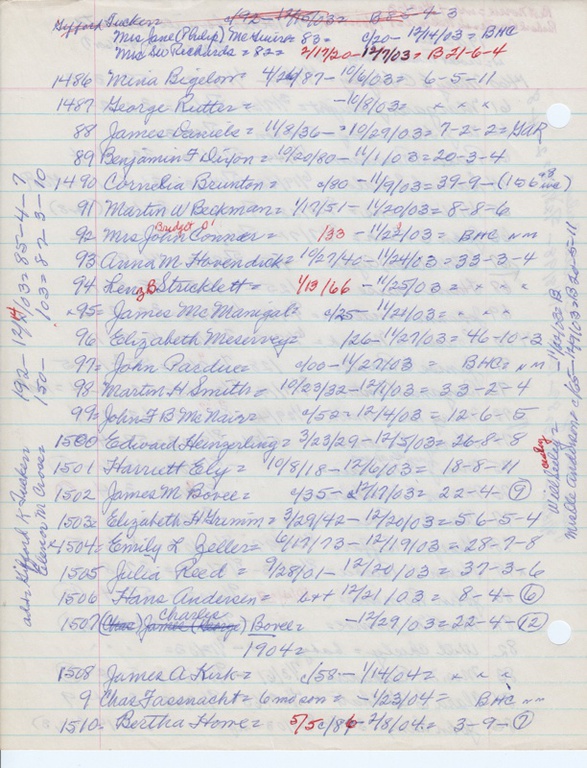 Gifford Tucker c/92 - 12/15/03 = B 8 - 4 - 3
Mrs Jane (Philip) McGuire = 83 = c/20 - 12/14/03 = BHC
Mrs Geo Richards = 82 = 2/17/20 - 12/7/03 = B 21-6-4
1486 = Mina Bigelow = 4/26/87 - 10/6/03 = 6-5-11
1487 George Rutter = - 10/8/03 = x x x
88 James Daniels = 11/8/36 - 10/29/03 = 7-2-2 = GAR
89 Benjamin F Dixon = 10/20/80 - 11/1/03 = 20-3-4
1490 Cornelia Brunton = c/80 - 11/9/03 = 39-9-
91 Martin W Beckman = 1/17/51 - 11/20/03 = 8-8-6
92 Mrs John Bridget O' Connor = 1/33 - 11/23/03 = BHC NM
93 Anna M Hovendick = 10/27/40 - 11/24/03 = 33-3-4
94 Stricklett = 1/13/66 - 11/25/03 = x x x
95 = James McManigal = c/25 - 11/21/03 = x x x
96 Elizabeth Meservey = 1/26 - 11/27/03 = 46-10-3
97 = John Pardue = c/00 - 11/27/03 = BHC = NM
98 Martin H Smith = 10/23/32 - 12/1/03 = 33-2-4
99 John F B McNair = c/52 = 12/4/03 = 12-6-5
1500 Edward Heinzerling = 3/23/29 - 12/5/03 = 26-8-8
1501 Harriett Ely = 10/8/18 - 12/6/03 = 18-8-11
1502 James M Bovee = c/35 - 12/17/03 = 22-4-(9)
1503 Elizabeth H Grimm = 3/29/42 - 12/20/03 = 56-5-4
1504 = Emily L Zeller = 6/17/73 - 12/19/03 = 28-7-8
1505 Julia Reed = 9/28/01 - 12/20/03 = 37-3-6
1506 Hans Andersen = 12/21/03 = 8-4-(6)
1507 (Chas) James (George) Charlie Bovee = - 12/29/03 = 22-4-(12)
1904 =
1508 James A Kirk = c/58 - 1/14/04 = x x x
9 Chas Fassnacht = 6 mo son = - 1/23/04 = BHC NM
1510 = Bertha Howe = 5/5 c/86 - 2/8/04 = 3-9-(7)
add = Gifford K Tucker 192 - 12/14/03 = 85-4-7
Eleanor M 150 - /03 = 82-3-10
Will Seeley =